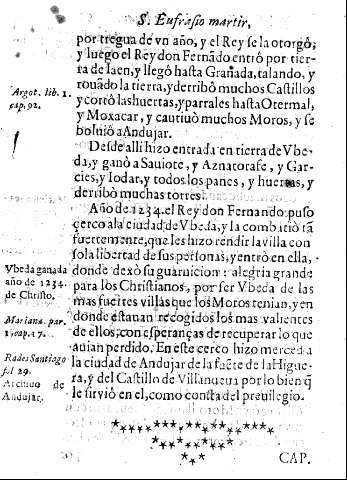 S. Eufrasio martir,
por tregua de vn año, y el Rey se la otorgô;
y luego el Rey don Fernãdo entrò por tier-
ra de Iaen, y llegó hasta Granada, talando, y
rouãdo la tierra, y derribò muchos Castillos
y cortò las huertas, y parrales hasta Otermal,
y Moxacar, y cautiuò muchos Moros, y se
boluiò a Andujar.
Argot. lib. 1.
cap. 92.
Desde alli hizo entrada en tierra de Vbe-
da, y ganò a Sauiote, y Aznatorafe, y Gar-
cies, y Iodar, y todos los panes, y huertas, y
derribò muchas torres.
Año de 1234. el Rey don Fernando puso
çerco a la ciudad de Vbeda, y la combatiò tã
fuertemente, que les hizo rendir la villa con
sola libertad de sus personas, y entrò en ella,
donde dexò su guarnicion: alegria grande
para los Christianos, por ser Vbeda de las
mas fuertes villas que los Moros tenian, y en
donde estauan recogidos los mas valientes
de ellos, con esperanças de recuperar lo que
auian perdido. En este cerco hizo merced a
la ciudad de Andujar de la fuẽte de la Higue-
ra, y del Castillo de Villanueua por lo bien q̃
le siruiò en el, como consta del preuilegio.
Vbeda ganada
año de 1234.
de Christo.
Mariana. par.
1. cap. 17.
Rades Santiago
fol 29.
Archiuo de
Andujar.
CAP.